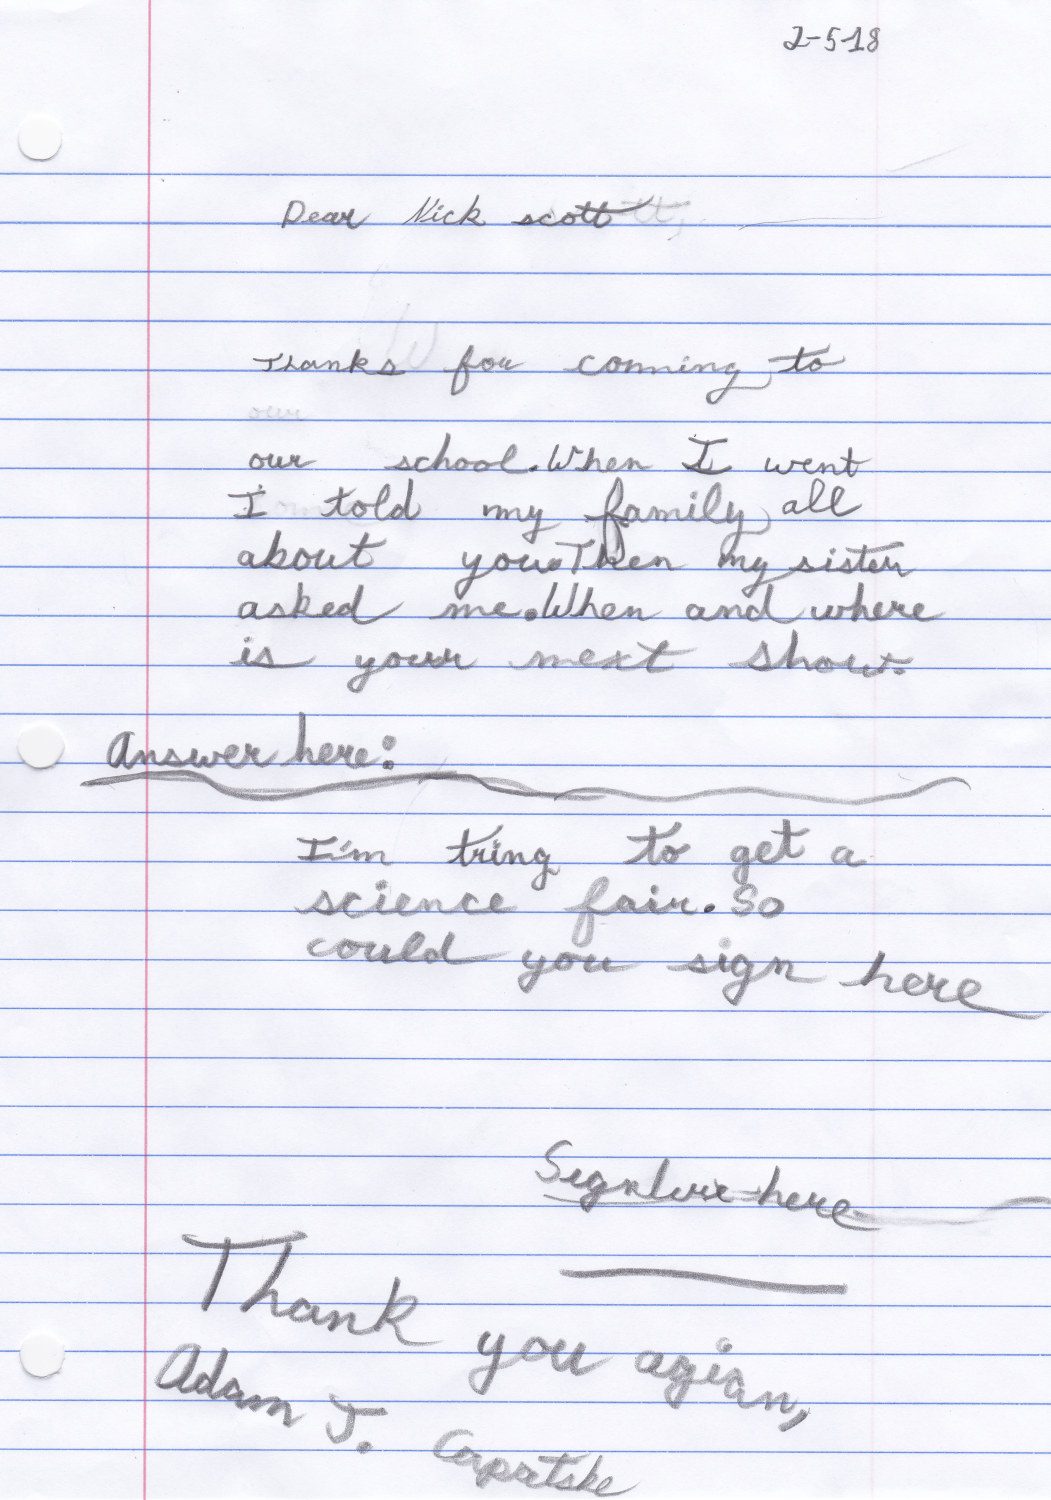 2-5-18
Dear Nick scott
Thanks for comming to
our
our school. When I went
I told my family all
about you. Then my sister
asked me. When and where
is your next show.
Answer here:
I'm tring to get a
science fair. So
could you sign here
here
Thank you agian,
Adam J.